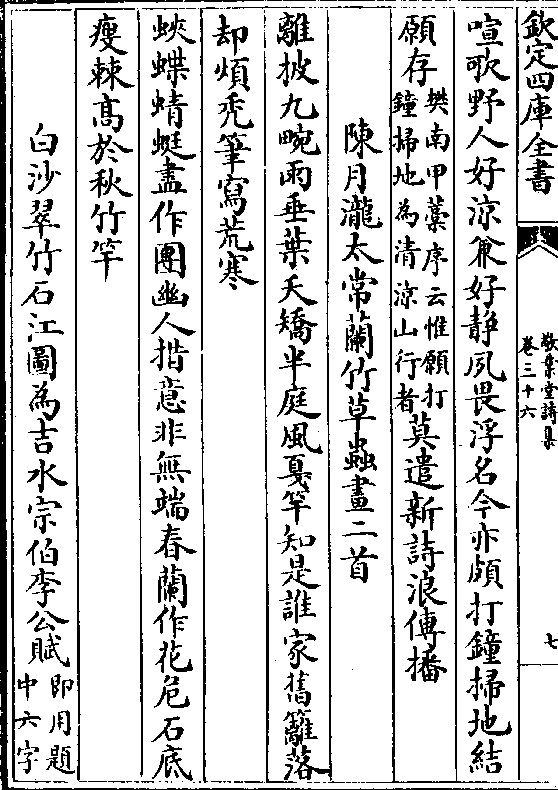 欽定四庫全書
敬業堂詩集
卷三十六
七
喧歌野人好涼兼好静夙畏浮名今亦頗打鐘掃地結
願存
樊南甲藁序云惟願打
鐘掃地為清涼山行者
莫遣新詩浪傳播
陳月瀧太常蘭竹草蟲畫二首
離披九畹雨垂葉夭矯半庭風戛竿知是誰家舊籬落
却煩秃筆寫荒寒
蛺蝶蜻蜓盡作團幽人措意非無端春蘭作花危石底
瘦棘髙於秋竹竿
白沙翠竹石江圖為吉水宗伯李公賦
即用題
中六字